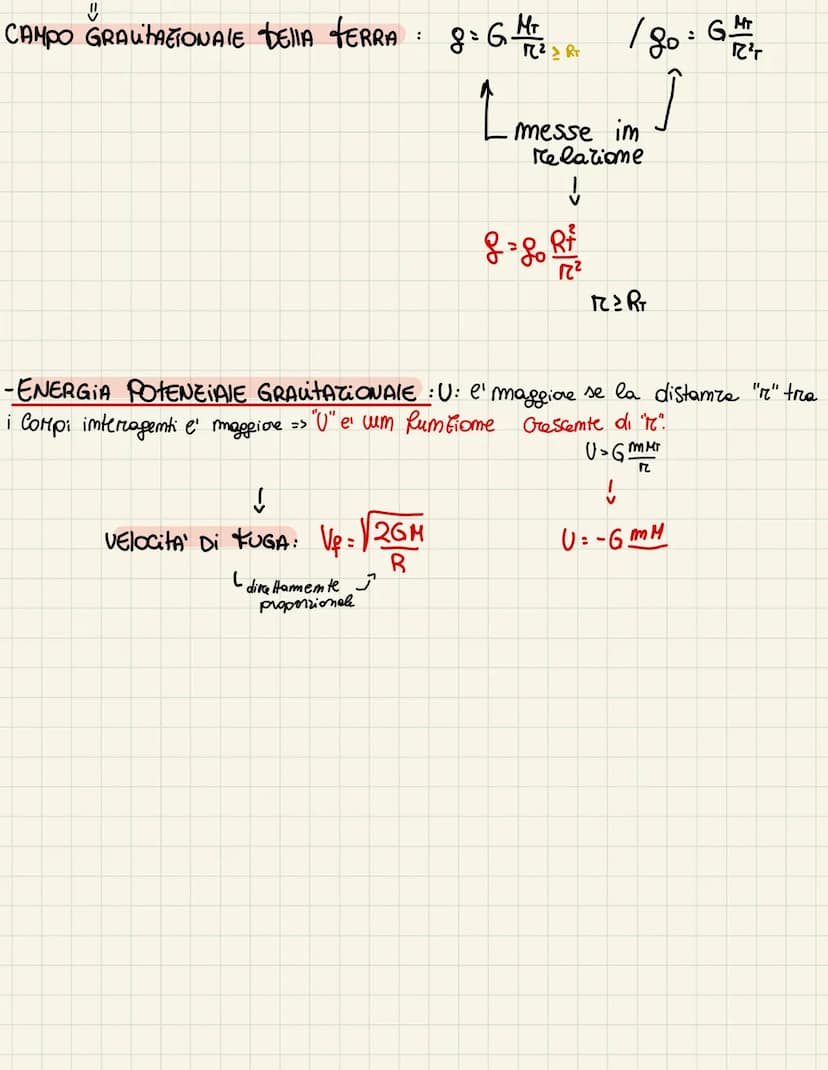 ⇓
CAMPO GRAVITAZIONALE DELLA TERRA : g = G MT/r² ≥ RT / g0 = G MT/r²T
messe in
relazione
↓
g = g0 RT²/r²
r ≥ RT
- ENERGIA POTENZIALE GRAVITAZIONALE : U: e' maggiore se la distanza "r" tra
i corpi interagenti e' maggiore => "U" e' un funzione crescente di "r".
U > G mMT/r
↓
VELOCITA' DI FUGA: Vf = √2GM/R
U = -G mM
direttamente
proporzionale